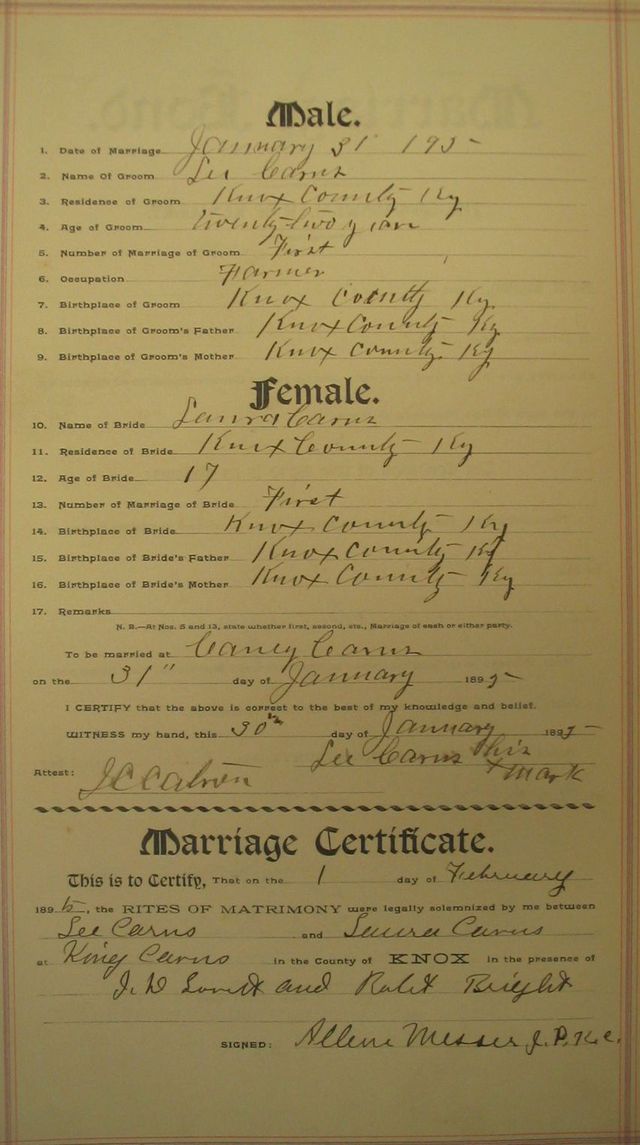 Male.
1. Date of Marriage January 31 1895
2. Name Of Groom Lee Carns
3. Residence of Groom Knox County Ky
4. Age of Groom twenty-two years
5. Number of Marriage of Groom First
6. Occupation Farmer
7. Birthplace of Groom Knox County Ky
8. Birthplace of Groom's Father Knox County Ky
9. Birthplace of Groom's Mother Knox County Ky
Female.
10. Name of Bride Laura Carns
11. Residence of Bride Knox County Ky
12. Age of Bride 17
13. Number of Marriage of Bride First
14. Birthplace of Bride Knox County Ky
15. Birthplace of Bride's Father Knox County Ky
16. Birthplace of Bride's Mother Knox County Ky
17. Remarks
N. B.—At Nos. 5 and 13, state whether first, second, etc., Marriage of each or either party.
To be married at Caney Carns
on the 31" day of January 1895
I CERTIFY that the above is correct to the best of my knowledge and belief.
WITNESS my hand, this 30th day of January 1895
Lee Carns his
x mark
Attest: J C
Marriage Certificate.
This is to Certify, That on the 1 day of February
1895, the RITES OF MATRIMONY were legally solemnized by me between
Lee Carns and Laura Carns
at King Carns in the County of KNOX in the presence of
J. D and Robt Bright
SIGNED: Messer J. P. K. C.